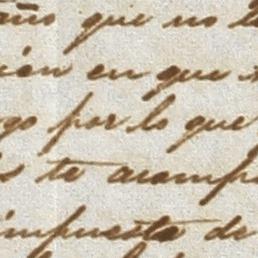 año que no
ión en que
go por lo que
s te acomp
impuesto de